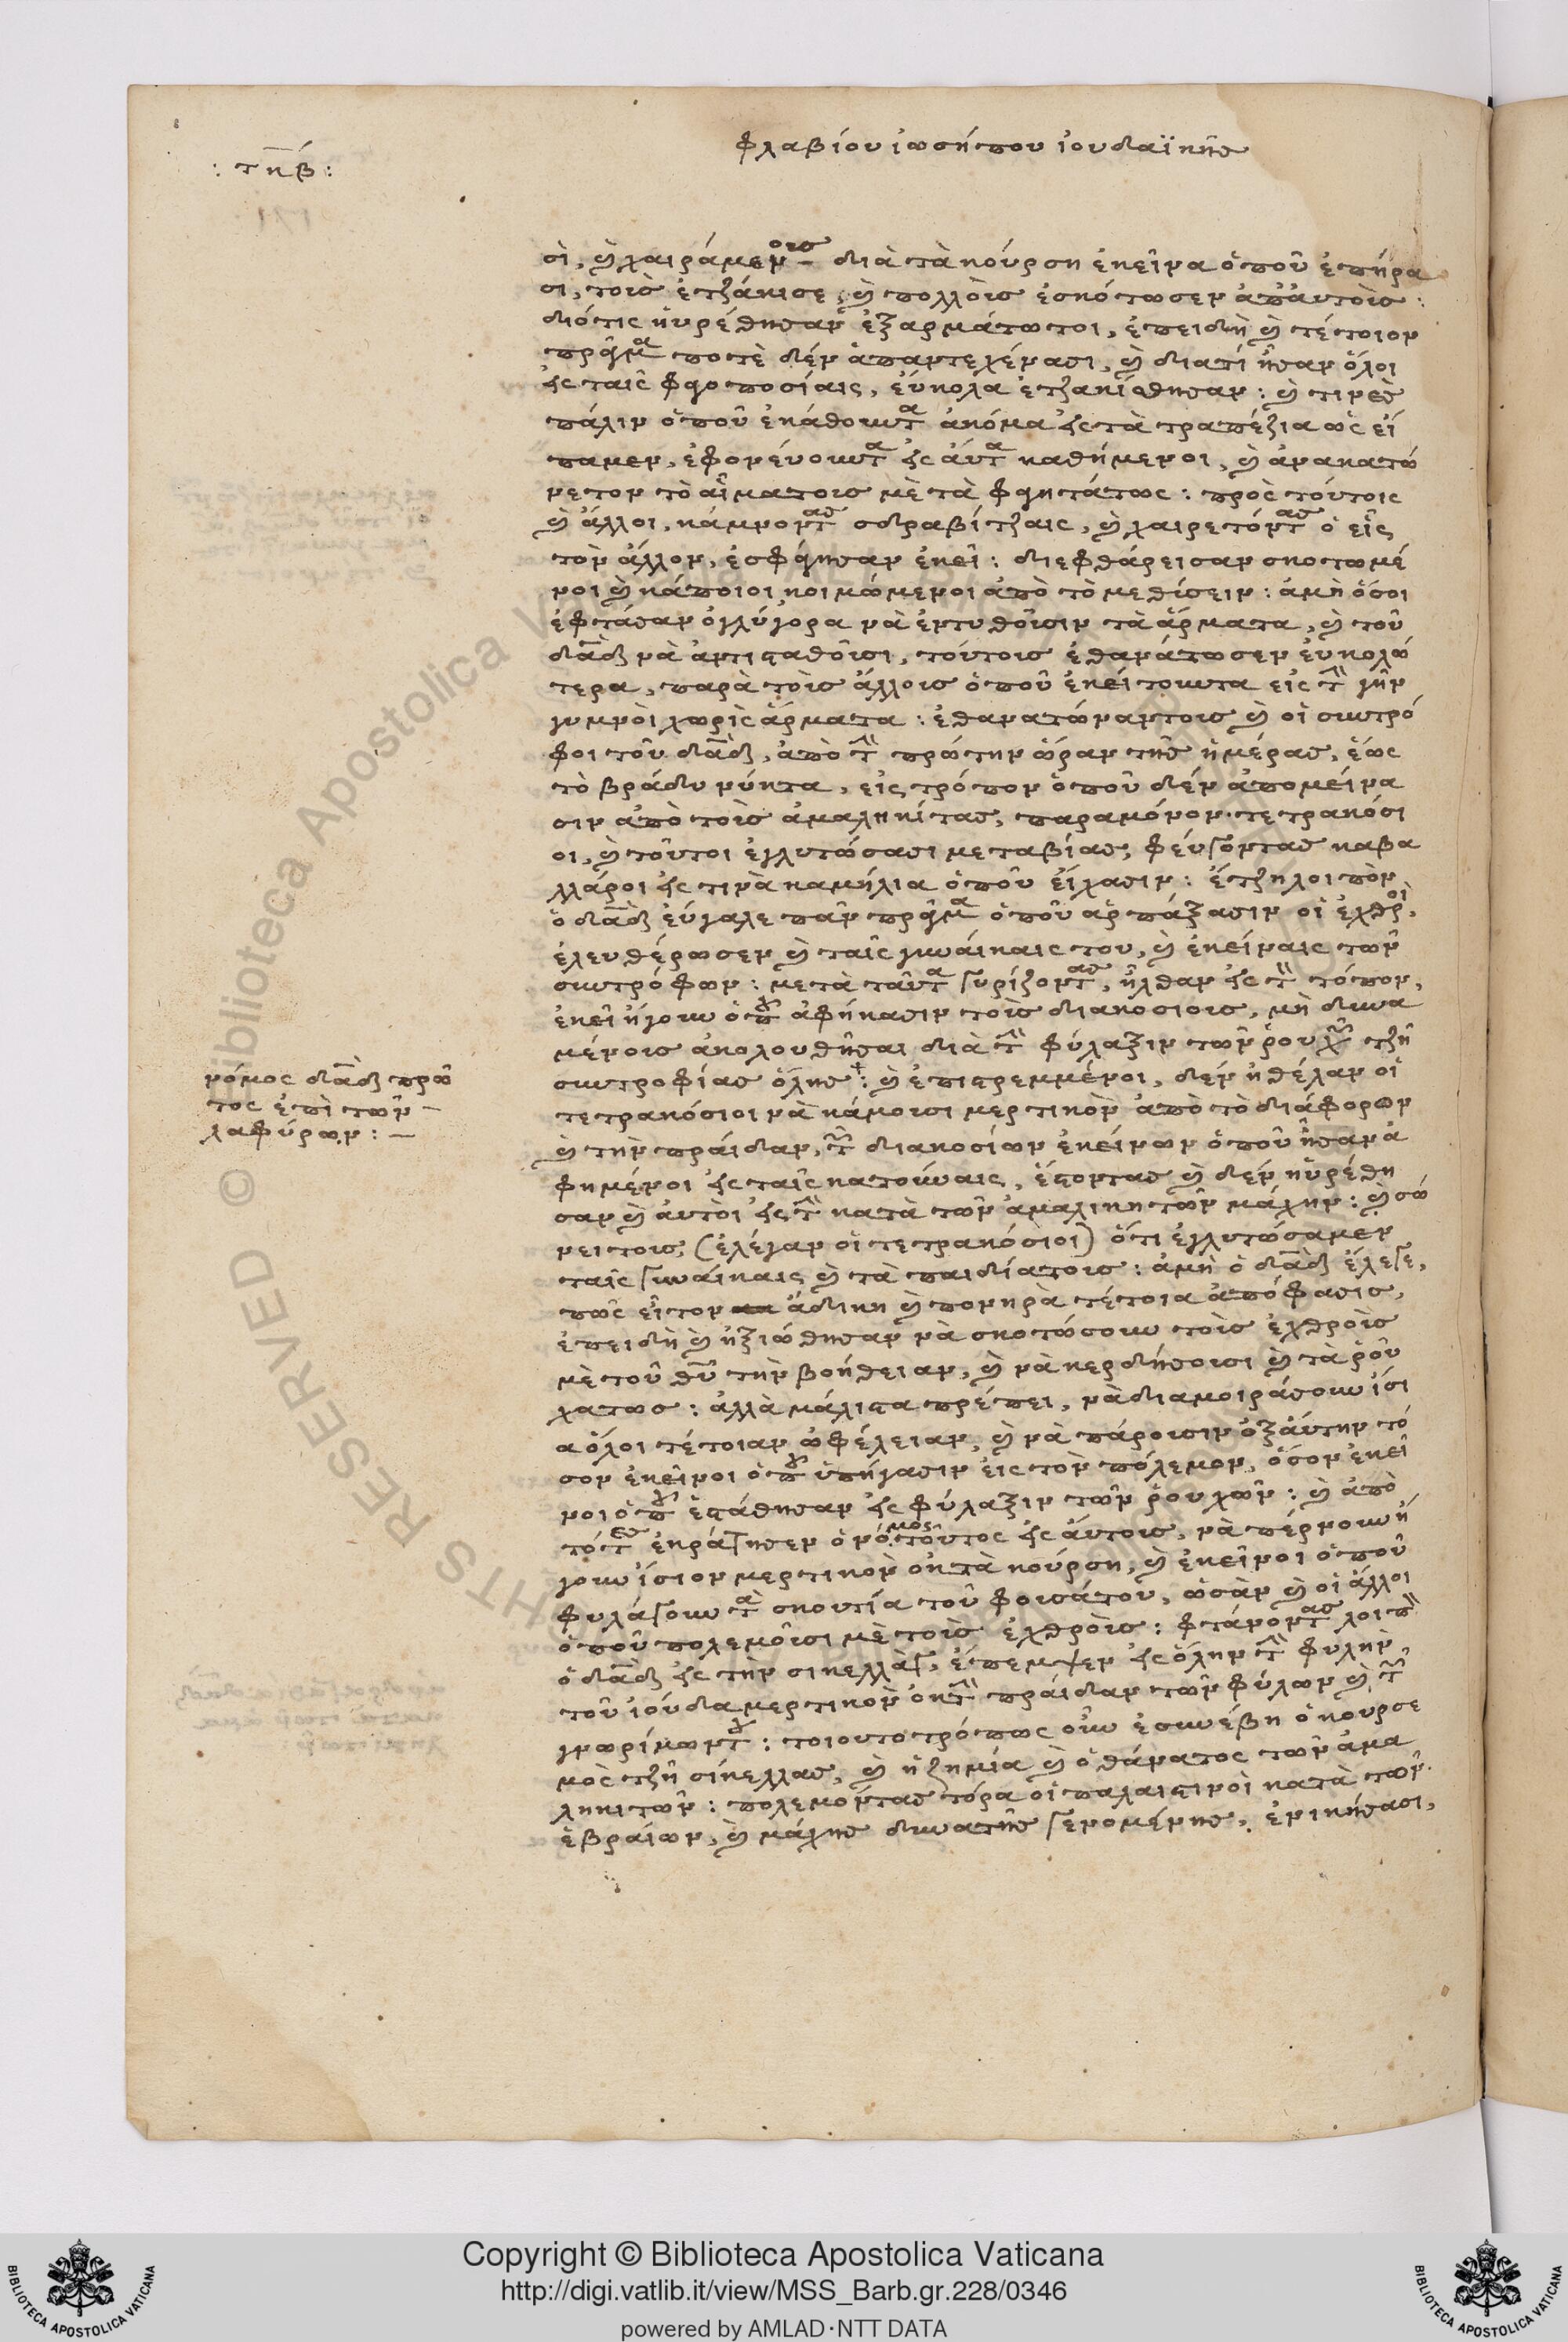 : τκβ :
φλαβίου ἰωσήπου ἰουδαϊκῆς
σὶ, καὶ χαιράμενοις διὰ τὰ κούρση ἐκεῖνα ὁποῦ ἐπήρα
σι, τοις ἐτζάκισε, καὶ πολλοὶς ἐσκότωσεν ἀπ' αὐτοὶς :
διότις ηὑρέθησαν ἐξαρμάτωτοι, ἐπειδὴ καὶ τέτοιον
πρᾶγμα ποτὲ δὲν ἀπαντεχένασι, καὶ διατί ἦσαν ὅλοι
ἐς ταῖς φαοποσίαις, εὔκολα ἐτζακίσθησαν : καὶ τινὲς
πάλιν ὁποῦ ἐκάθουντα ἀκόμα ἐς τὰ τραπέζια ὡς εἴ
παμεν, ἐφονεύουντα ἐς αὐτὰ καθήμενοι, καὶ ἀνακατώ
νετον τὸ αἷμα τοις μὲ τὰ φαγητά τως : πρὸς τούτοις
καὶ ἄλλοι, κάμνοντας σδραβίτζαις, καὶ χαιρετόντας ὁ εἷς
τὸν ἄλλον, ἐσφάγησαν ἐκεῖ : διεφθάρεισαν σκοτωμέ
νοι καὶ κάποιοι κοιμώμενοι ἀπὸ τὸ μεθίσειν : ἀμὴ ὅσοι
ἐφτάσαν ὀγλύγορα νὰ ἐντυθοῦσιν τὰ ἄρματα, καὶ τοῦ
δαδ νὰ ἀντισταθοῦσι, τούτοις ἐθανάτωσεν εὐκολώ
τερα, παρὰ τοὶς ἄλλοις ὁποῦ ἐκείτουντα εἰς τὴν γῆν
γυμνοὶ χωρὶς ἄρματα : ἐθανατώναν τοις καὶ οἱ συντρό
φοι τοῦ δαδ, ἀπὸ τὴν πρώτην ὥραν τῆς ἡμέρας, ἕως
τὸ βράδυ νύκτα, εἰς τρόπον ὁποῦ δὲν ἀπομείνα
σιν ἀπὸ τοὶς ἀμαληκίτας, παρα μόνον τετρακόσι
οι, καὶ τοῦτοι ἐγλυτώσασι μετα βίας, φεύγοντας καβα
λλάροι ἐς τινὰ καμήλια ὁποῦ εἴχασιν : ἔτζη λοιπὸν
ὁ δαδ εὔγαλε πᾶν πρᾶγμα ὁποῦ ἁρπάξασιν οἱ ἐχθροὶ,
ἐλευθέρωσεν καὶ ταῖς γυναίκαις του, καὶ ἐκείναις τῶν
συντρόφων : μετὰ ταῦτα γυρίζοντας, ἦλθαν ἐς τὸν τόπον,
ἐκεῖ ἤγουν ὁποῦ ἀφήκασιν τοὶς διακοσίοις, μὴ δυνα
μένοις ἀκολουθῆσαι διὰ τὴν φύλαξιν τῶν ῥούχων τζῆ
συντροφίας ὅλης : καὶ ἐπιστρεμμένοι, δὲν ἠθέλαν οἱ
τετρακόσιοι νὰ κάμουσι μερτικὸν ἀπὸ τὸ διάφορον
καὶ τὴν πράιδαν, τῶν διακοσίων ἐκείνων ὁποῦ ἦσαν ἀ
φημένοι ἐς ταῖς κατούναις, ἔστοντας καὶ δὲν ηὑρέθη
σαν καὶ αὐτοὶ ἐς τὴν κατὰ τῶν ἀμαλικητῶν μάχην : καὶ σώ
νει τοις, (ἐλέγαν οἱ τετρακόσιοι) ὅτι ἐγλυτώσαμεν
ταῖς γυναίκαις καὶ τὰ παιδία τοις : ἀμὴ ὁ δαδ ἔλεγε,
πῶς εἶτον ἄδικη καὶ πονηρὰ τέτοια ἀπόφασις,
ἐπειδὴ καὶ ἠξιώθησαν νὰ σκοτώσουν τοὶς ἐχθροὶς
μὲ τοῦ θῦ τὴν βοήθειαν, καὶ νὰ κερδήσουσι καὶ τὰ ῥοῦ
χα τως : ἀλλὰ μάλιστα πρέπει, νὰ διαμοιράσουν ἴσι
α ὅλοι τέτοιαν ὠφέλειαν, καὶ νὰ πάρουσιν ὀξ αὐτὴν τό
σον ἐκεῖνοι ὁποῦ ὑπήγασιν εἰς τὸν πόλεμον, ὅσον ἐκεῖ
νοι ὁποῦ ἐστάθησαν ἐς φύλαξιν τῶν ῥουχῶν : καὶ ἀπὸ
τότες ἐκράτησεν ὁ νόμος τοῦτος ἐς αὐτοις, νὰ πέρνουν ἤ
γουν ἴσιον μερτικὸν ὀκ τὰ κούρση, καὶ ἐκεῖνοι ὁποῦ
φυλάγουν τὰ σκουτία τοῦ φουσάτου, ὡσὰν καὶ οἱ ἄλλοι
ὁποῦ πολεμοῦσι μὲ τοὶς ἐχθροὶς : φτάνοντας λοιπὸν
ὁ δαδ ἐς τὴν σικελλὰγ, ἔπεμψεν ἐς ὅλην τὴν φυλὴν
τοῦ ἰούδα μερτικὸν ὀκ τὴν πράιδαν τῶν φύλων καὶ τῶν
γνωρίμων του : τοιουτοτρόπως οὖν ἐσυνέβη ὁ κουρσε
μὸς τζῆ σίκελλας, καὶ ἡ ζημία καὶ ὁ θάνατος τῶν ἀμα
ληκιτῶν : πολεμόντας τόρα οἱ παλαιστινοὶ κατὰ τῶν
ἑβραίων, καὶ μάχης δυνατῆς γενομένης, ἐνικήσασι,
νόμος δαδ πρῶ
τος ἐπὶ τῶν
λαφύρων : —
Copyright © Biblioteca Apostolica Vaticana
http://digi.vatlib.it/view/MSS_Barb.gr.228/0346
powered by AMLAD·NTT DATA
BIBLIOTECA APOSTOLICA VATICANA
BIBLIOTECA APOSTOLICA VATICANA